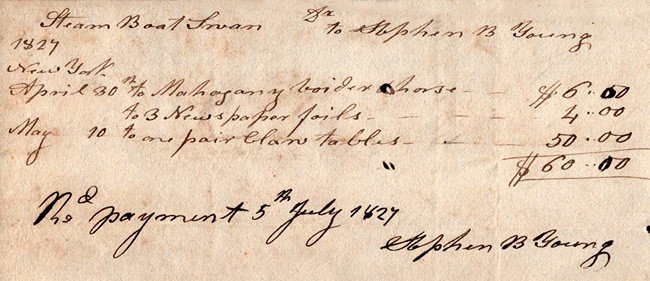 Steam Boat Swan Dr to Stephen B Young
1827
New York
April 30th to Mahogany voider & horse - - $6.00
to 3 Newspaper foils - - - - 4.00
May 10 to one pair claw tables - - - 50.00
" $60.00
Recd payment 5th July 1827
Stephen B Young